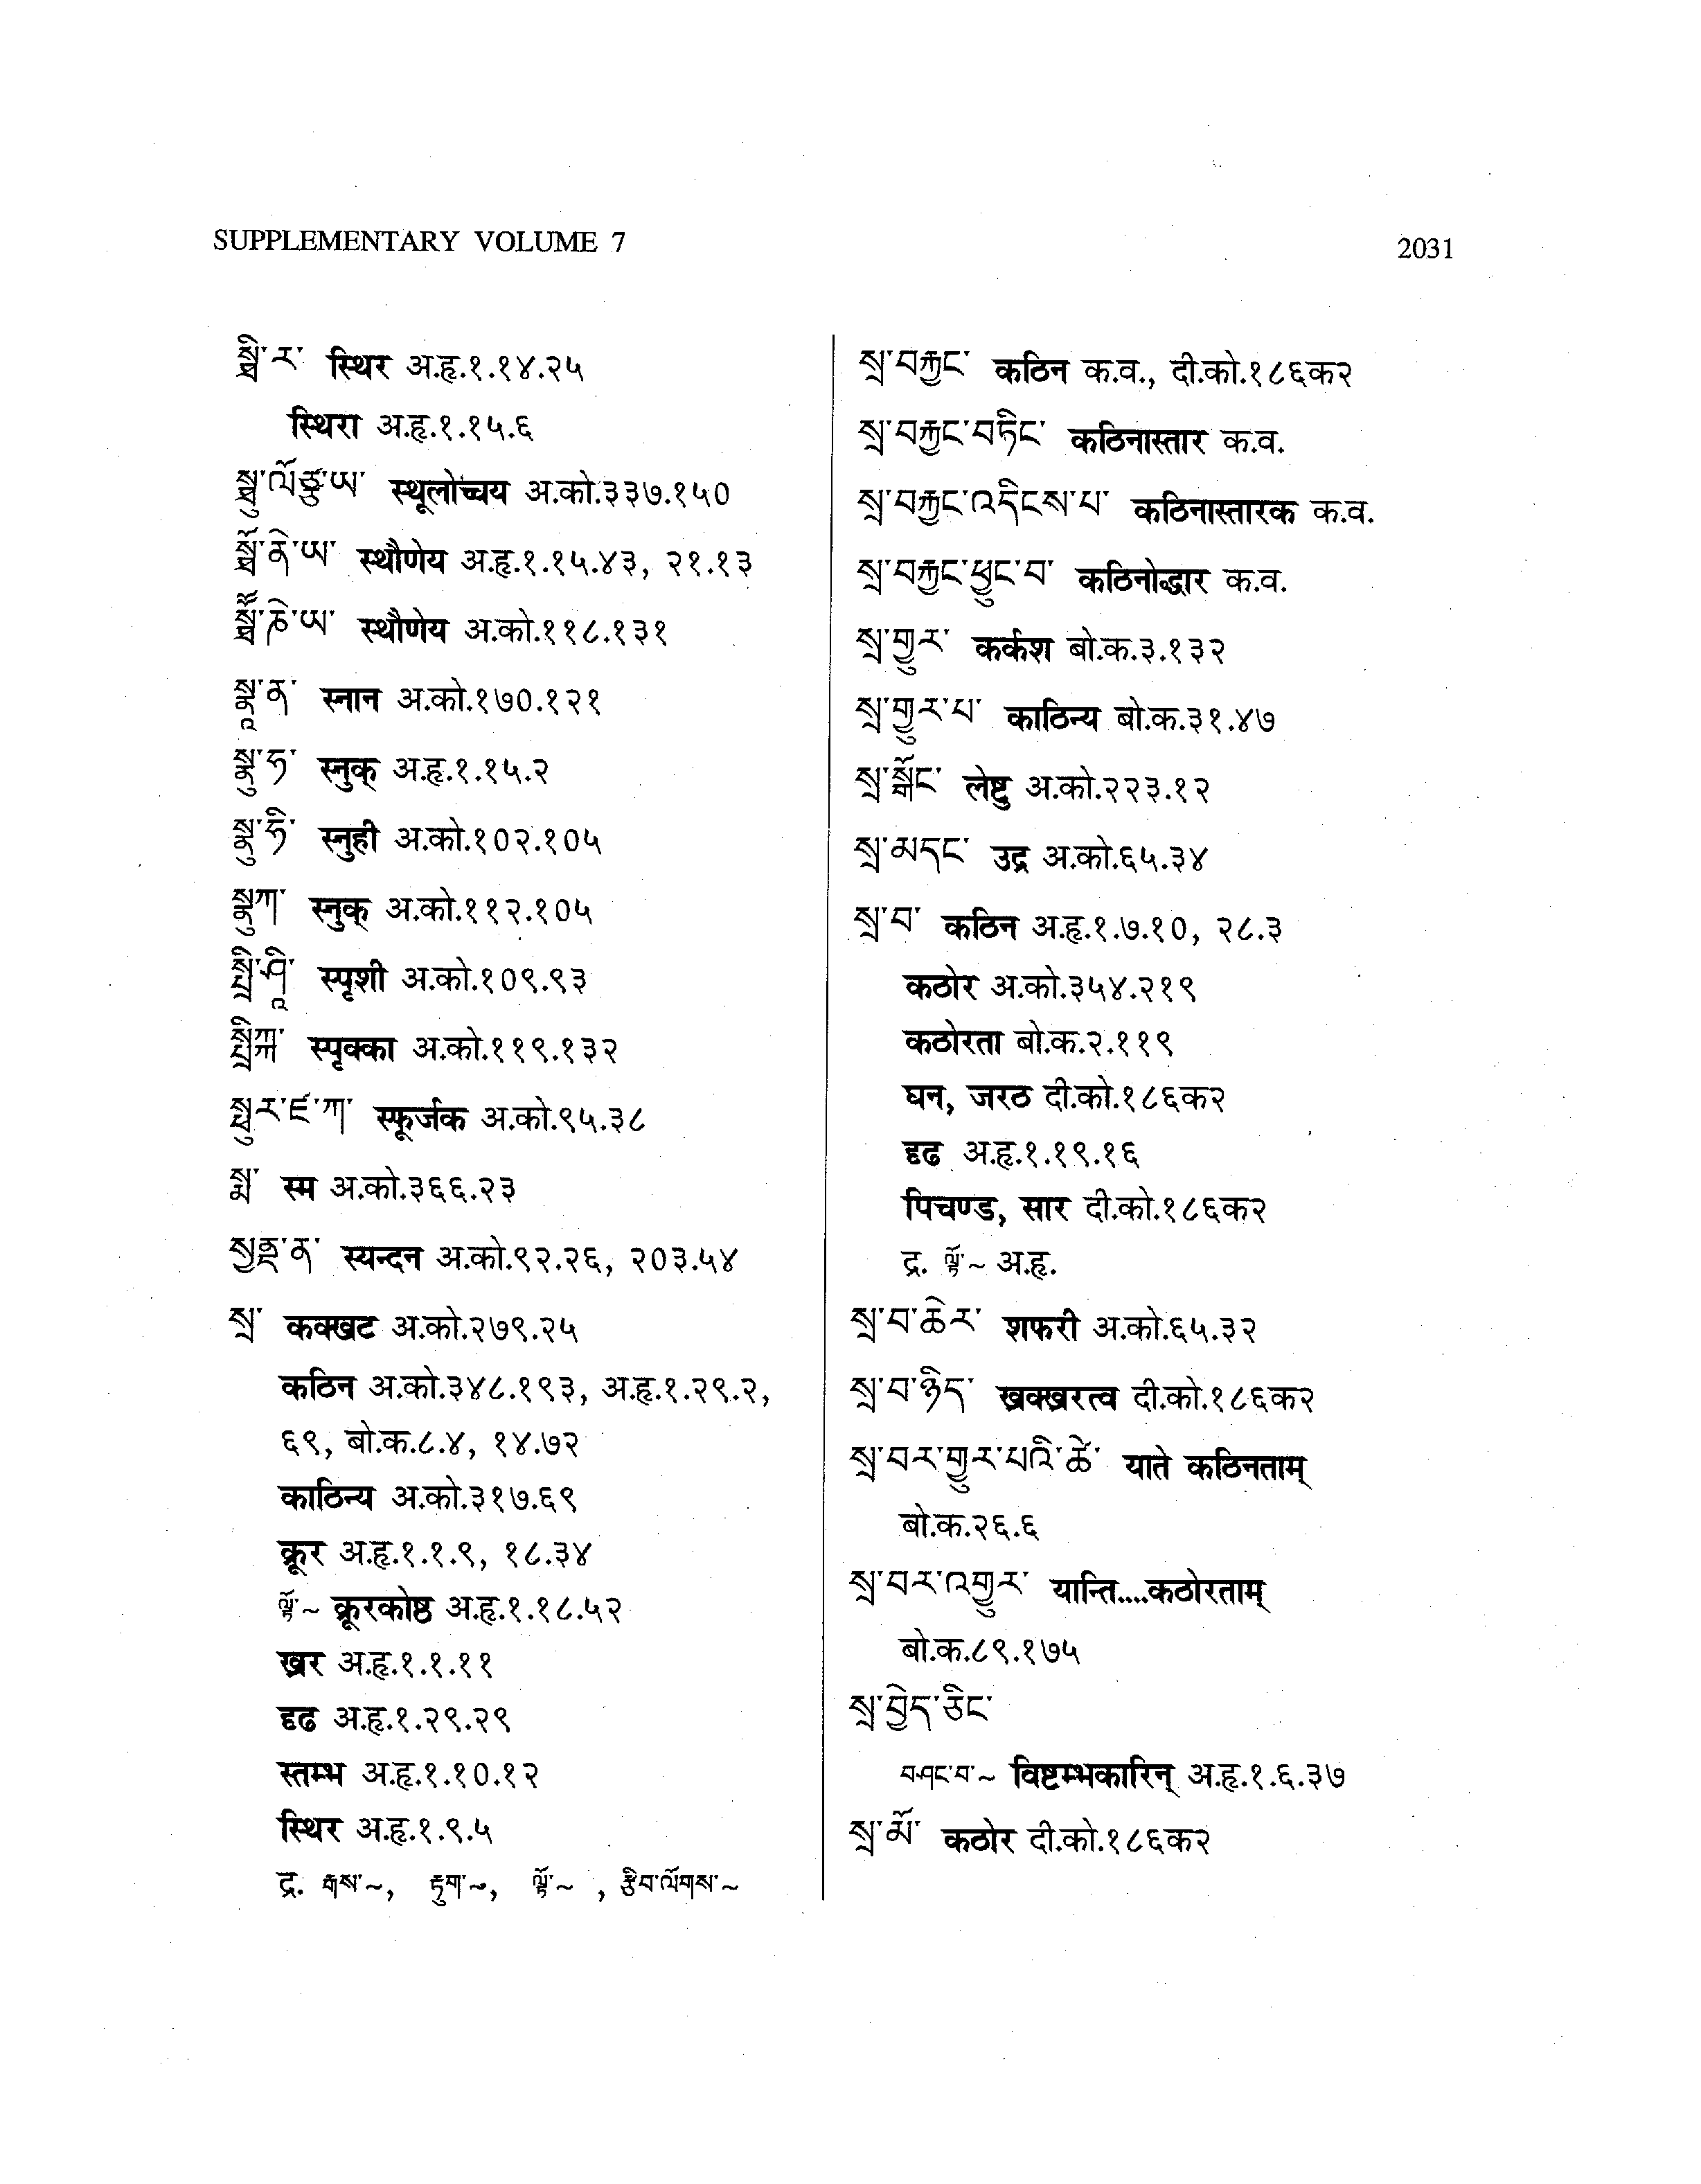 SUPPLEMENTARY VOLUME 7
2031
སྠི་ར་ स्थिर अ.हृ.१.१४.२५
स्थिरा अ.हृ.१.१५.६
སྠུ་ལོཙྪ་ཡ་ स्थूलोच्चय अ.को.३३७.१५०
སྠོ་ནེ་ཡ་ स्थौणेय अ.हृ.१.१५.४३, २१.१३
སྠཽ་ཎེ་ཡ་ स्थौणेय अ.को.११८.१३१
སྣཱ་ན་ स्नान अ.को.१७०.१२१
སྣུ་ཧ་ स्नुक् अ.हृ.१.१५.२
སྣུ་ཧི་ स्नुही अ.को.१०२.१०५
སྣུཀ་ स्नुक् अ.को.११२.१०५
སྤྲི་ཤཱི་ स्पृशी अ.को.१०९.९३
སྤྲིཀྐ་ स्पृक्का अ.को.११९.१३२
སྥུ་ར་ཛ་ཀ་ स्फूर्जक अ.को.९५.३८
སྨ་ स्म अ.को.३६६.२३
སྱནྡ་ན་ स्यन्दन अ.को.९२.२६, २०३.५४
སྲ་ कक्खट अ.को.२७९.२५
कठिन अ.को.३४८.१९३, अ.हृ.१.२९.२,
६९, बो.क.८.४, १४.७२
काठिन्य अ.को.३१७.६९
क्रूर अ.हृ.१.१.९, १८.३४
ལྟོ་~ क्रूरकोष्ठ अ.हृ.१.१८.५२
खर अ.हृ.१.१.११
दृढ अ.हृ.१.२९.२९
स्तम्भ अ.हृ.१.१०.१२
स्थिर अ.हृ.१.९.५
द्र. རྒས་~, རྟུག་~, ལྟོ་~ , རྩིབ་ལོགས་~
སྲ་བརྐྱང་ कठिन क.व., दी.को.१८६क२
སྲ་བརྐྱང་བཏིང་ कठिनास्तार क.व.
སྲ་བརྐྱང་འདིངས་པ་ कठिनास्तारक क.व.
སྲ་བརྐྱང་ཕྱུང་བ་ कठिनोद्धार क.व.
སྲ་གྱུར་ कर्कश बो.क.३.१३२
སྲ་གྱུར་པ་ काठिन्य बो.क.३१.४७
སྲ་སྒོང་ लेष्टु अ.को.२२३.१२
སྲ་མདང་ उद्र अ.को.६५.३४
སྲ་བ་ कठिन अ.हृ.१.७.१०, २८.३
कठोर अ.को.३५४.२१९
कठोरता बो.क.२.११९
घन, जरठ दी.को.१८६क२
दृढ अ.हृ.१.१९.१६
पिचण्ड, सार दी.को.१८६क२
द्र. ལྟོ་~ अ.हृ.
སྲ་བ་ཆེར་ शफरी अ.को.६५.३२
སྲ་བ་ཉིད་ खक्खरत्व दी.को.१८६क२
སྲ་བར་གྱུར་པའི་ཚེ་ याते कठिनताम्
बो.क.२६.६
སྲ་བར་འགྱུར་ यान्ति....कठोरताम्
बो.क.८९.१७५
སྲ་བྱེད་ཅིང་
བཤང་བ་~ विष्टम्भकारिन् अ.हृ.१.६.३७
སྲ་མོ་ कठोर दी.को.१८६क२